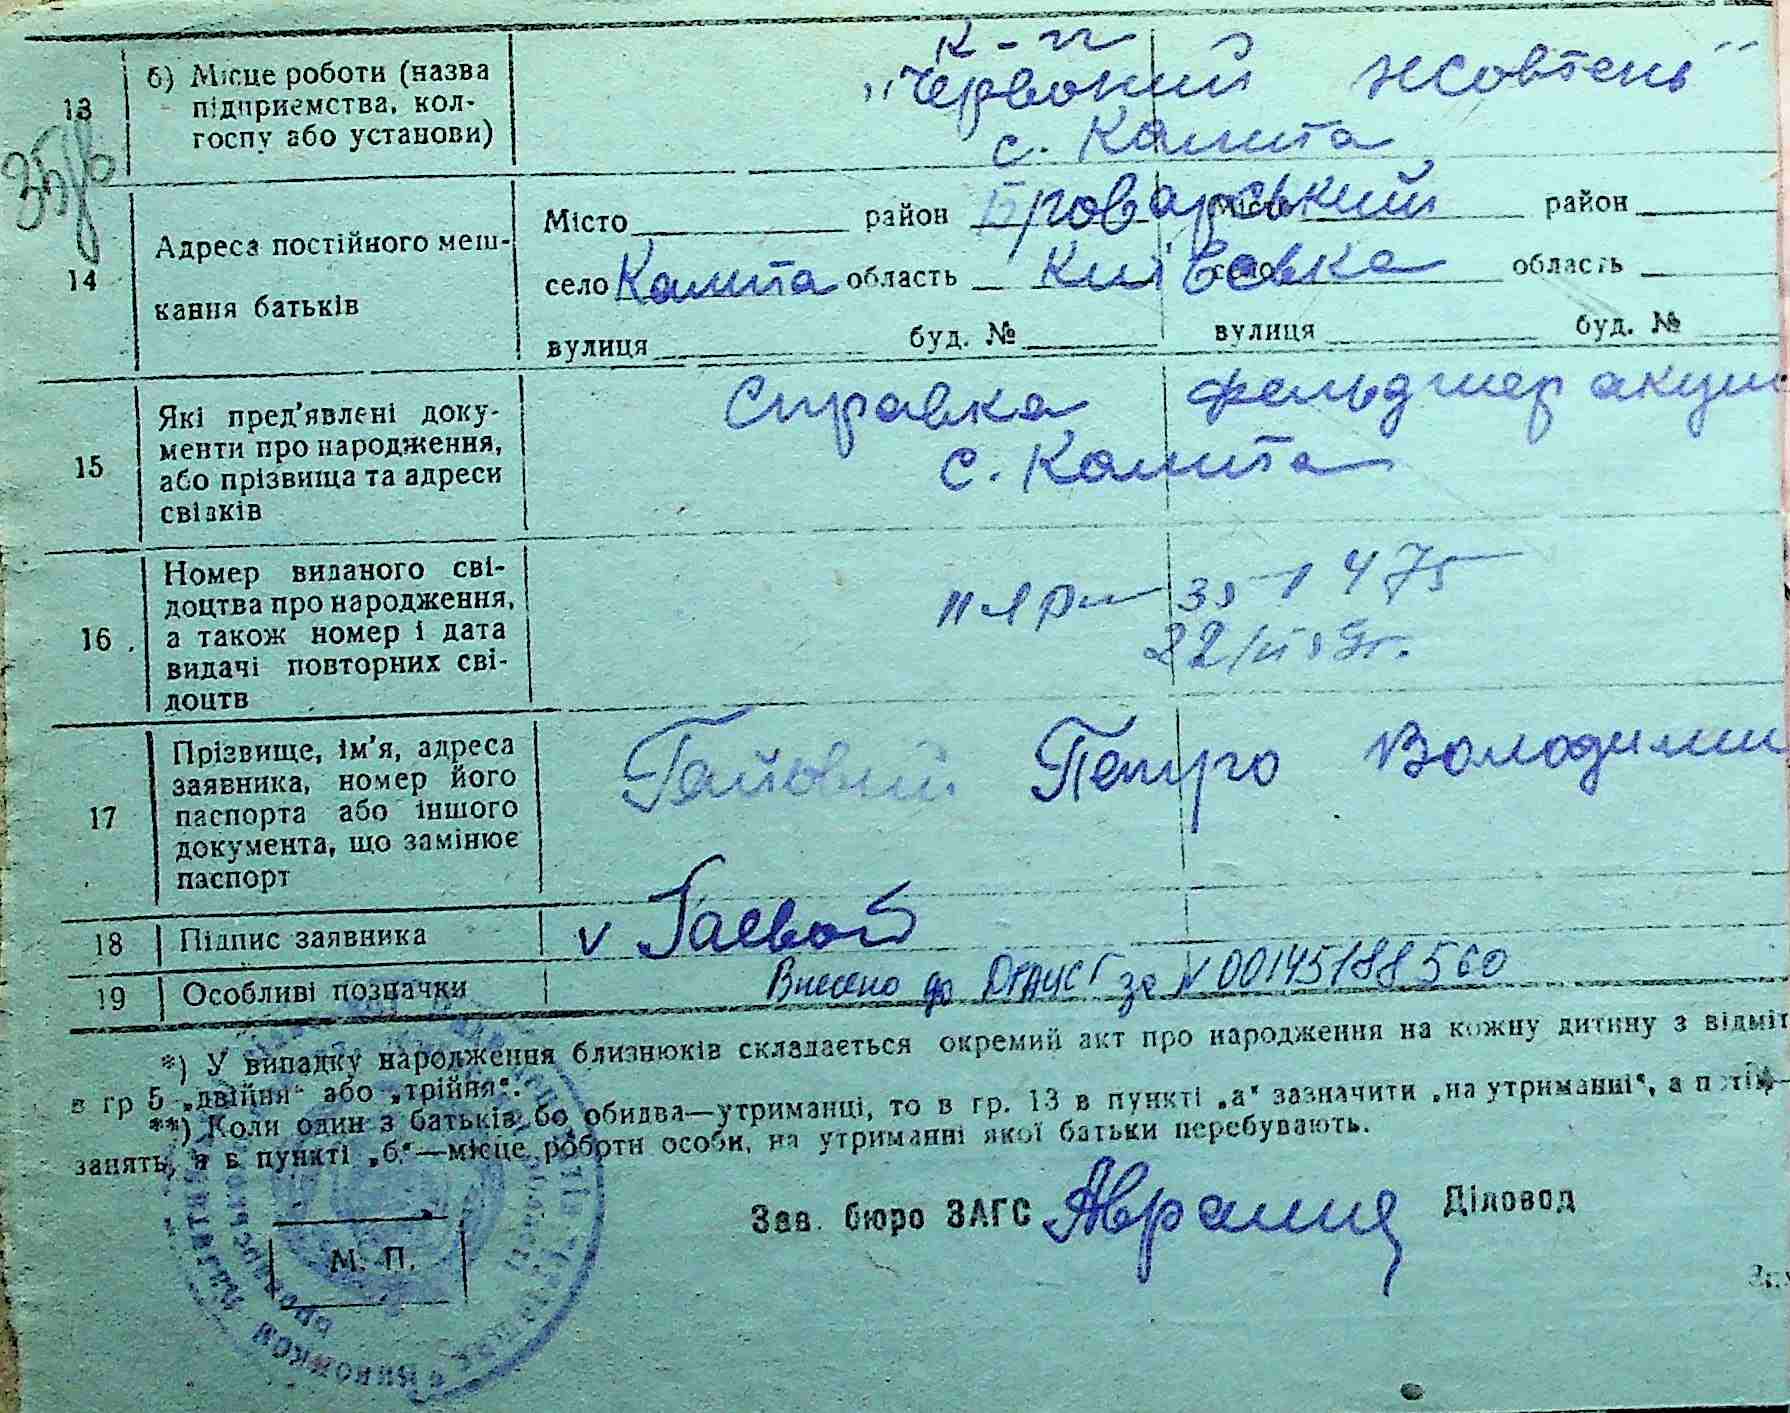 К-п
13 б) Місце роботи (назва "Червоний жовтень"
підприємства, кол-
госпу або установи) с. Калита
35/в
Місто район Броварський Місто район
14 Адреса постійного меш- село Калита область Київська село область
кання батьків
вулиця буд. № вулиця буд. №
15 Які пред'явлені доку- Справка фельдшер акуш
менти про народження, с. Калита
або прізвища та адреси
свідків
16 Номер виданого сві-
доцтва про народження,
а також номер і дата
видачі повторних сві-
доцтв
17 Прізвище, ім'я, адреса Гайовий Петро Володими
заявника, номер його
паспорта або іншого
документа, що замінює
паспорт
18 Підпис заявника v Гаевой
19 Особливі позначки Внесено до ДРАЦСГ за № 00145188560
*) У випадку народження близнюків складається окремий акт про народження на кожну дитину з відміт
в гр 5 „двійня“ або „трійня“.
**) Коли один з батьків бо обидва—утриманці, то в гр. 13 в пункті „а“ зазначити „на утриманні“, а потім—
занять, а в пункті „б“—місце роботи особи, на утриманні якої батьки перебувають.
Зав. бюро ЗАГС Діловод
М. П.